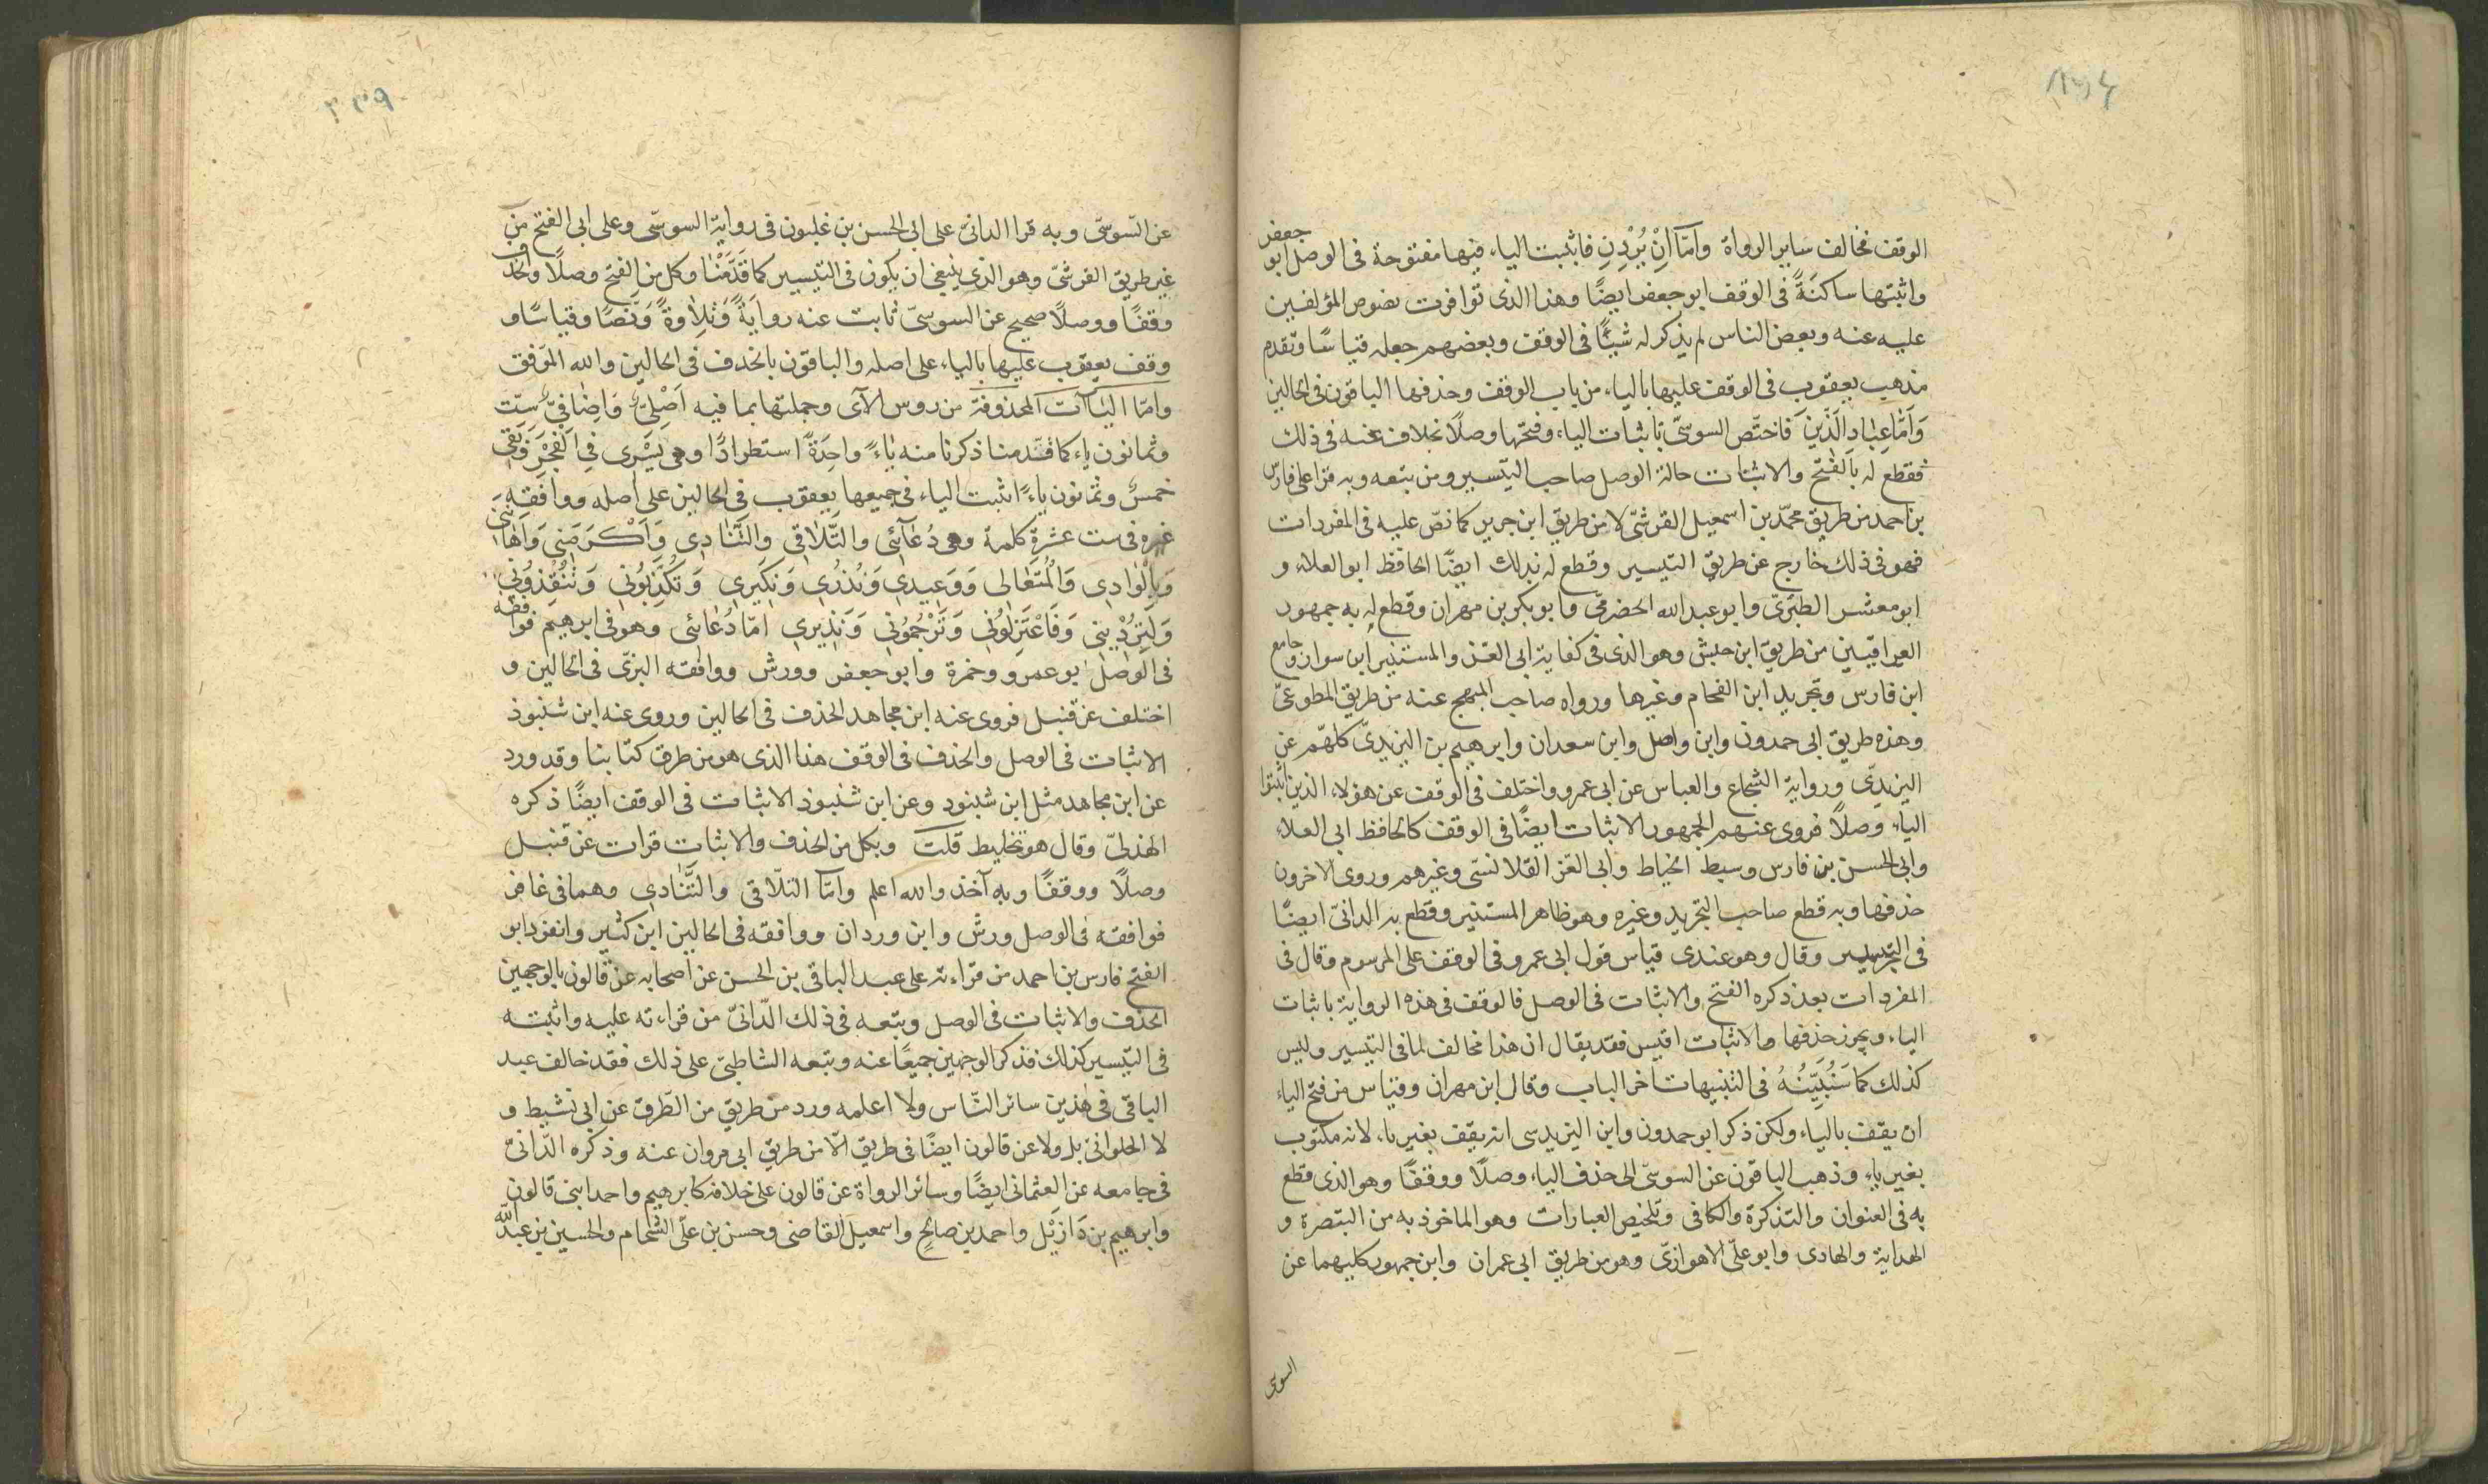 الوقف فخالف ساير الرواة وامّا اِنْ يُرْدِنِ فاثبت الياء فيها مفتوحة فى الوصل ابو جعفر
واثبتها ساكنَةً فى الوقف ابو جعفر ايضًا وهذا الذى توافرت نصوص المؤلفين
عليه عنه وبعض الناس لم يذكر له شيئًا فى الوقف وبعضهم جعله قياسًا وتقدم
مذهب يعقوب فى الوقف عليها بالياء من باب الوقف وحذفها الباقون فى الحالين
وَاَمّا عِبَادِ الَّذِينَ فاختّص السوسىّ باثبات الياء وفتحها وصلًا بخلاف عنه فى ذلك
فقطع له بالفتح والاثبات حالة الوصل صاحب التيسير ومن تبعه وبه قرا على فارس
بن احمد من طريق محمّد بن اسمعيل القرشىّ لا من طريق ابن جرير كما نصّ عليه فى المفردات
فهو فى ذلك خارج عن طريق التيسير وقطع له بذلك ايضًا الحافظ ابو العلاء و
ابو معشر الطبرىّ وابو عبد الله الحضرمىّ وابو بكر بن مهران وقطع له به جمهور
العراقيين من طريق ابن حبش وهو الذى فى كفاية ابى العز والمستنير ابن سوار وجامع
ابن فارس وتجريد ابن الفحام وغيرها ورواه صاحب المبهج عنه من طريق المطوعىّ
وهذه طريق ابى حمدون وابن واصل وابن سعدان وابرهيم بن اليزيدىّ كلهّم عن
اليزيدّى ورواية الشجاع والعباس عن ابى عمرو واختلف فى الوقف عن هؤلاء الذين اثبتوا
الياء وصلًا فروى عنهم الجمهور الاثبات ايضًا فى الوقف كالحافظ ابى العلاء
وابى الحسن بن فارس وسبط الخياط وابى العز القلانسّى وغيرهم وروى الاخرون
حذفها وبه قطع صاحب التجريد وغيره وهو ظاهر المستنير وقطع به الدانىّ ايضًا
فى التيسير وقال وهو عندى قياس قول ابى عمرو فى الوقف على المرسوم وقال فى
المفردات بعد ذكره الفتح والاثبات فى الوصل فالوقف فى هذه الرواية باثبات
الياء ويجوز حذفها والاثبات اقيس فقد يقال ان هذا مخالف لما فى التيسير وليس
كذلك كما سَنُبَيِّنُهُ فى التنبيهات اخر الباب وقال ابن مهران وقياس من فتح الياء
ان يقف بالياء ولكن ذكر ابو حمدون وابن اليزيدى انه يقف بغير ياء لانه مكتوب
بغير ياء وذهب الباقون عن السوسىّ الى حذف الياء وصلًا ووقفًا وهو الذى قطع
به فى العنوان والتذكرة والكافى وتلخيص العبارات وهو الماخوذ به من التبصرة و
الهداية والهادى وابو علىّ الاهوازىّ وهو من طريق ابى عمران وابن جمهور كليهما عن
السوسى
٣٣٩
عن السّوسىّ وبه قرا الدانىّ على ابى الحسن بن غلبون فى رواية السوسّى وعلى ابى الفتح من
غير طريق القرشىّ وهو الذى ينبغى ان يكون فى التيسير كما قَدَّمْنَا وكل من الفتح وصلًا والحذف
وقفًا ووصلًا صحيح عن السوسىّ ثابت عنه روايَةً وَتِلاوةً وَنَصًّا وقياسًا و
وقف يعقوب عليها بالياء على اصله والباقون بالحذف فى الحالين والله الموّفق
وامّا الياآت المحذوفة من روس الآى وجملتها بما فيه اَصْلِىّ وَاِضَافِىّ ستّ
وثمانون ياء كما قدّمنا ذكرنا منه يَاءً واحِدَةً استطرادًا وهى يَسْرِى فِى الْفَجْرِ وَبَقِى
خمسٌ وثمانون ياءً اثبت الياء فى جميعها يعقوب فى الحالين على اصله ووافَقَه
غيره فى ست عشرة كلمة وهى دُعَآئِى والتَّلَاقِى والتَّنَادِى وَاَكْرَمَنِى وَاَهَانَنِى
وَبِالْوَادِى وَالْمُتَعَالى وَوَعِيدِى وَنُذُرِى وَنَكِيرِى وَتُكَذِّبُونِى وَتُنْقِذُونِى
وَلَتُرْدِينِى وَفَاعْتَزِلُونِى وَتَرْجُمُونِى وَنَذِيرِى امّا دُعَائى وهو فى ابرهيم فوافقه
فى الوصل ابو عمرو وحمزة وابو جعفر وورش ووافقه البزىّ فى الحالين و
اختلف عن قنبل فروى عنه ابن مجاهد الحذف فى الحالين وروى عنه ابن شنبوذ
الاثبات فى الوصل والحذف فى الوقف هذا الذى هو من طرق كتابنا وقد ورد
عن ابن مجاهد مثل ابن شنبوذ وعن ابن شنبوذ الاثبات فى الوقف ايضًا ذكره
الهذلىّ وقال هو تخليط قلت وبكل من الحذف والاثبات قرات عن قنبل
وصلًا ووقفًا وبه آخذ والله اعلم وامّا التلّاقى والتَّنَادِى وهما فى غافر
فوافقه فى الوصل ورش وابن وردان ووافقه فى الحالين ابن كثير وانفرد ابو
الفتح فارس بن احمد من قراءته على عبد الباقى بن الحسن عن اصحابه عن قالون بالوجهين
الحذف والاثبات فى الوصل وتبعه فى ذلك الدّانىّ من قراءته عليه واثبته
فى التيّسير كذلك فذكر الوجهين جميعًا عنه وتبعه الشاطبىّ على ذلك فقد خالف عبد
الباقى فى هذين سائر النّاس ولا اعلمه ورد من طريق من الطّرق عن ابى نشيط و
لا الحلوانىّ بل ولا عن قالون ايضًا فى طريق الّا من طريق ابى مروان عنه وذكره الدّانىّ
فى جامعه عن العثمانى ايضًا وسائر الرواة عن قالون على خلافه كابرهيم واحمد ابنى قالون
وابرهيم بن دَازِيَل واحمد بن صالح واسمعيل القاضى وحسن بن علّى الشحام والحسين بن عبد الله